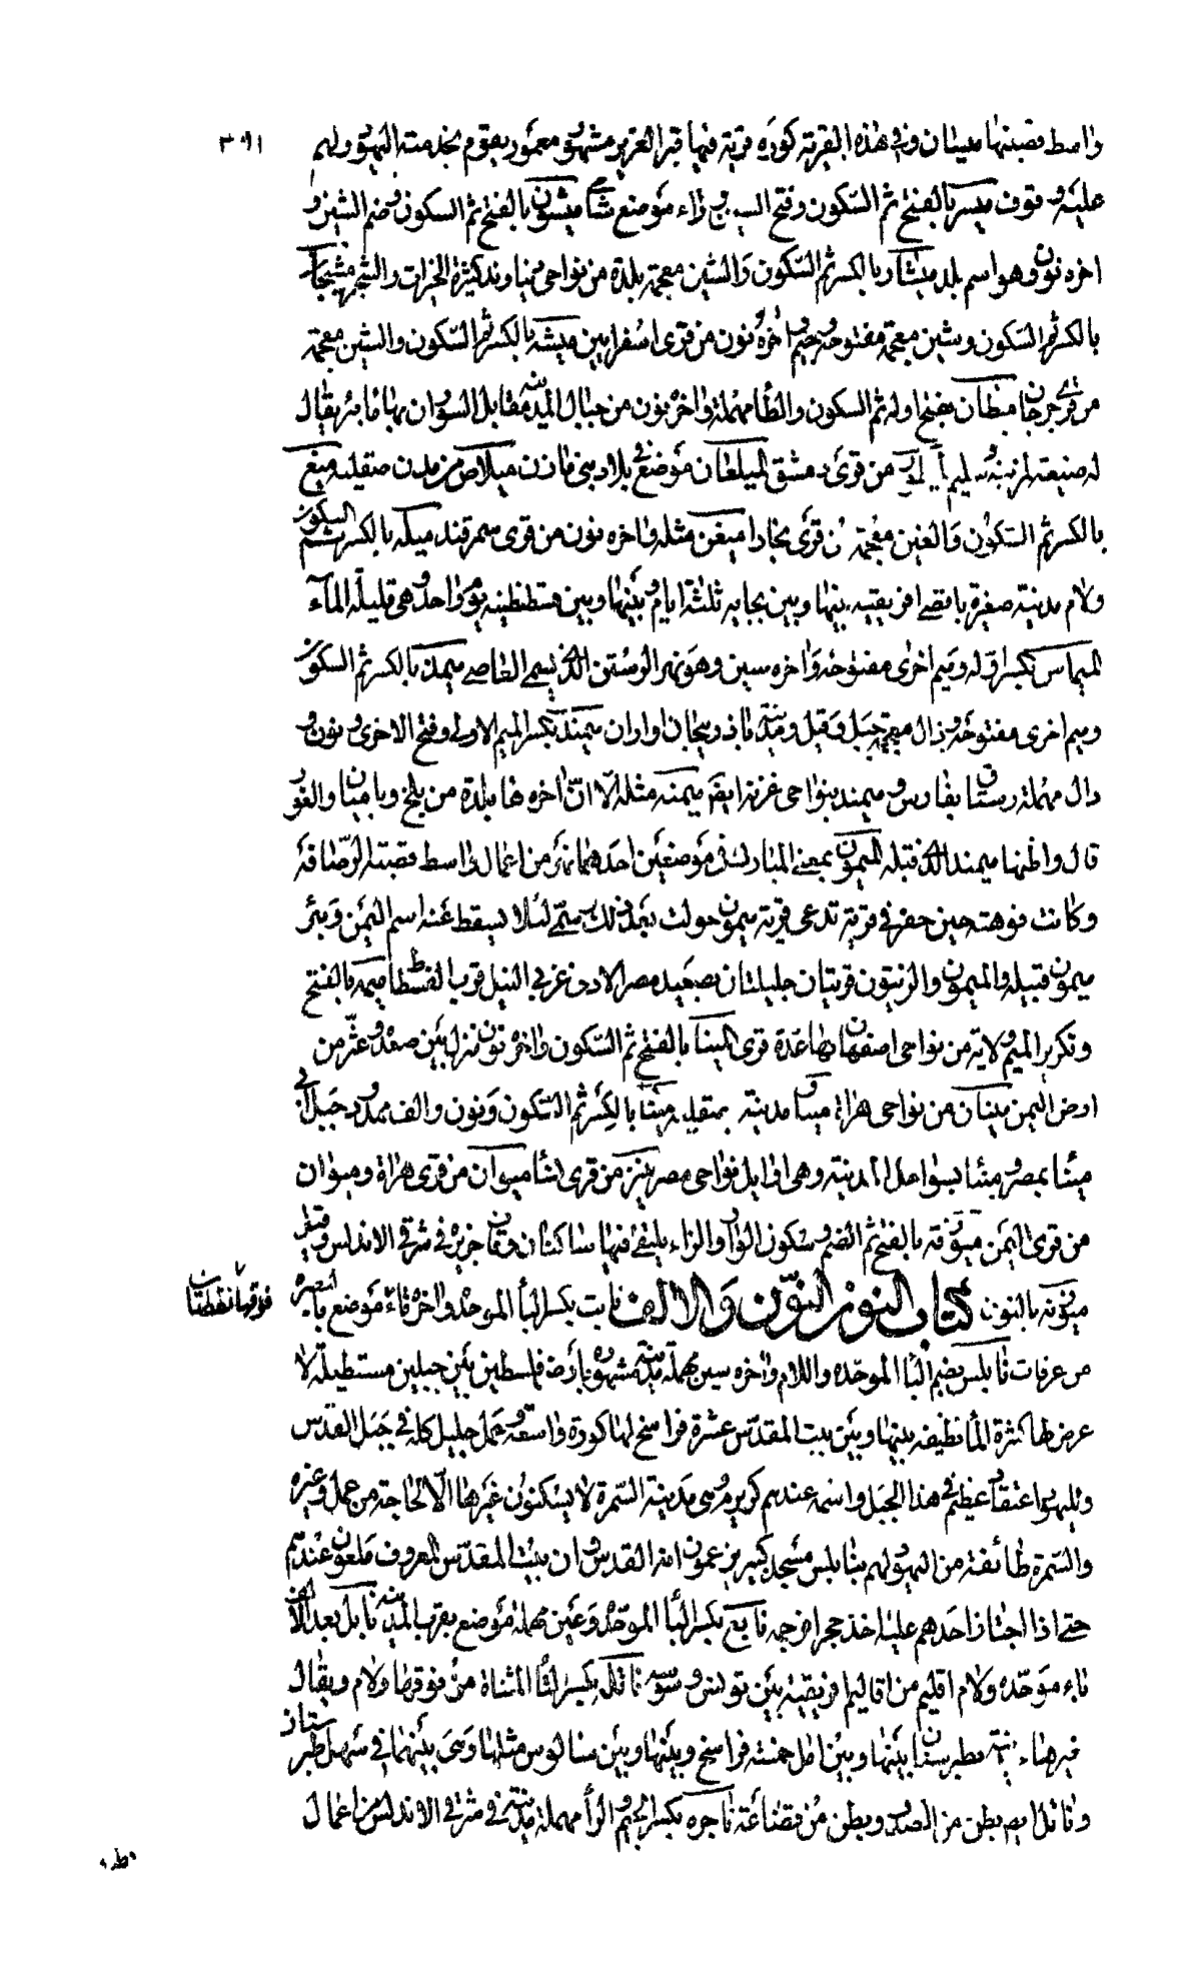 ٣٩١
واسط قصبتها ميسان وفي هذه القرية كورة قرية فيها قبر العزير مشهور معمور يقوم بخدمته اليهود ولهم
عليه وقوف ميسر بالفتح ثم السكون وفتح السين وراء موضع شام ميشون بالفتح ثم السكون وضم الشين و
اخره نون وهو اسم بلد ميشار بالكسر ثم السكون والشين معجمة بلدة من نواحي دنباوند كثيرة الخيرات والشجر ميشجان
بالكسر ثم السكون وشين معجمة مفتوحة وجيم واخره نون من قرى اسفراين ميشه بالكسر ثم السكون والشين معجمة
من قرى جرجان ميطان بفتح اوله ثم السكون والطاء مهملة واخره نون من جبال المدينة مقابل الشوران بها ماء بئر يقال
له ضبعة لمزينة وسليم من قرى دمشق الميلطان موضع في بلاد بني مازن ميلاص من مدن صقلية ميغ
بالكسر ثم السكون والغين معجمة من قرى بخارا ميغن مثله واخره نون من قرى سمرقند ميله بالكسر ثم السكون
ولام مدينة صغيرة باقصى افريقية بينها وبين بجاية ثلثة ايام وبينها وبين قسطنطينيه يوم واحد وهي قليلة الماء
الميماس بكسر اوله وميم اخرى مفتوحة واخره سين وهو نهر الرستن الذي يسمى العاصي ميمذ بالكسر ثم السكون
وميم اخرى مفتوحة وذال معجمة جبل وقيل مدينة باذربيجان او اران ميمند بكسر الميم الاولى وفتح الاخرى ونون و
دال مهملة رستاق بفارس وميمند بنواحي غزنة ايضا ميمنه مثله الا ان اخره هاء بلدة من بلخ وباميان والغور
قال واظنها ميمند الذي قبله الميمون بمعنى المبارك في موضعين احدهما نهر من اعمال واسط قصبته الرصافة
وكانت فوهته حين حفر في قرية تدعى قرية ميمون حولت بعد ذلك سمي لئلا يسقط عنه اسم اليمن وبئر
ميمون قبيله والميمون والزيتون قريتان جليلتان بصعيد مصر الادنى غربي النيل قرب الفسطاط ميمه بالفتح
وتكرير الميم ولاية من نواحي اصفهان بها عدة قرى المينا بالفتح ثم السكون واخره نون منزل بين صعدة وعثر من
ارض اليمن مينان من نواحي هراة مدينة بصقلية مينا بالكسر ثم السكون ونون والف ممدود جبل الى
مينا بمصر مينا بسواحل المدينة وهي اوايل نواحي مصر مينز من قرى نسا ميوان من قرى هراة وميوان
من قرى اليمن ميورقه بالفتح ثم الضم وسكون الواو والراء يلتقي فيها ساكنان وقاف جزيرة في شرقي الاندلس وقيل
ميورقه بالنون كتاب النون النون والالف نابت بكسر الباء الموحدة واخره تاء موضع بالبصرة
فوقها نقطتان
من عرفات نابلس بضم الباء الموحدة واللام واخره سين مهملة مدينة مشهورة بارض فلسطين بين جبلين مستطيلة لا
عرض لها كثيرة الماء نظيفة بينها وبين بيت المقدس عشرة فراسخ لها كورة واسعة وعمل جليل كله في جبل القدس
ولليهود اعتقاد عظيم في هذا الجبل واسمه عندهم كريزيم وهي مدينة السمرة لا يسكنون غيرها الا لحاجة من عمل وغيره
والسمرة طائفة من اليهود لهم بنابلس مسجد كبير يزعمون انه القدس وان بيت المقدس المعروف ملعون عندهم
حتى اذا اجتاز احدهم عليه اخذ حجرا فرجمه نابع بكسر الباء الموحدة وعين مهملة موضع بقرب المدينة نابل بعد الالف
باء موحدة ولام اقليم من اقاليم افريقية بين تونس وسوسه ناتل بكسر التاء المثناة من فوقها ولام ويقال
فيه هاء مدينة بطبرستان بينها وبين امل خمسة فراسخ وبينها وبين سالوس مثلها وهي بينهما في سهل طبرستان
وناتل بطن من الصدف وبطن من قضاعة ناجره بكسر الجيم والراء مهملة مدينة في شرقي الاندلس من اعمال